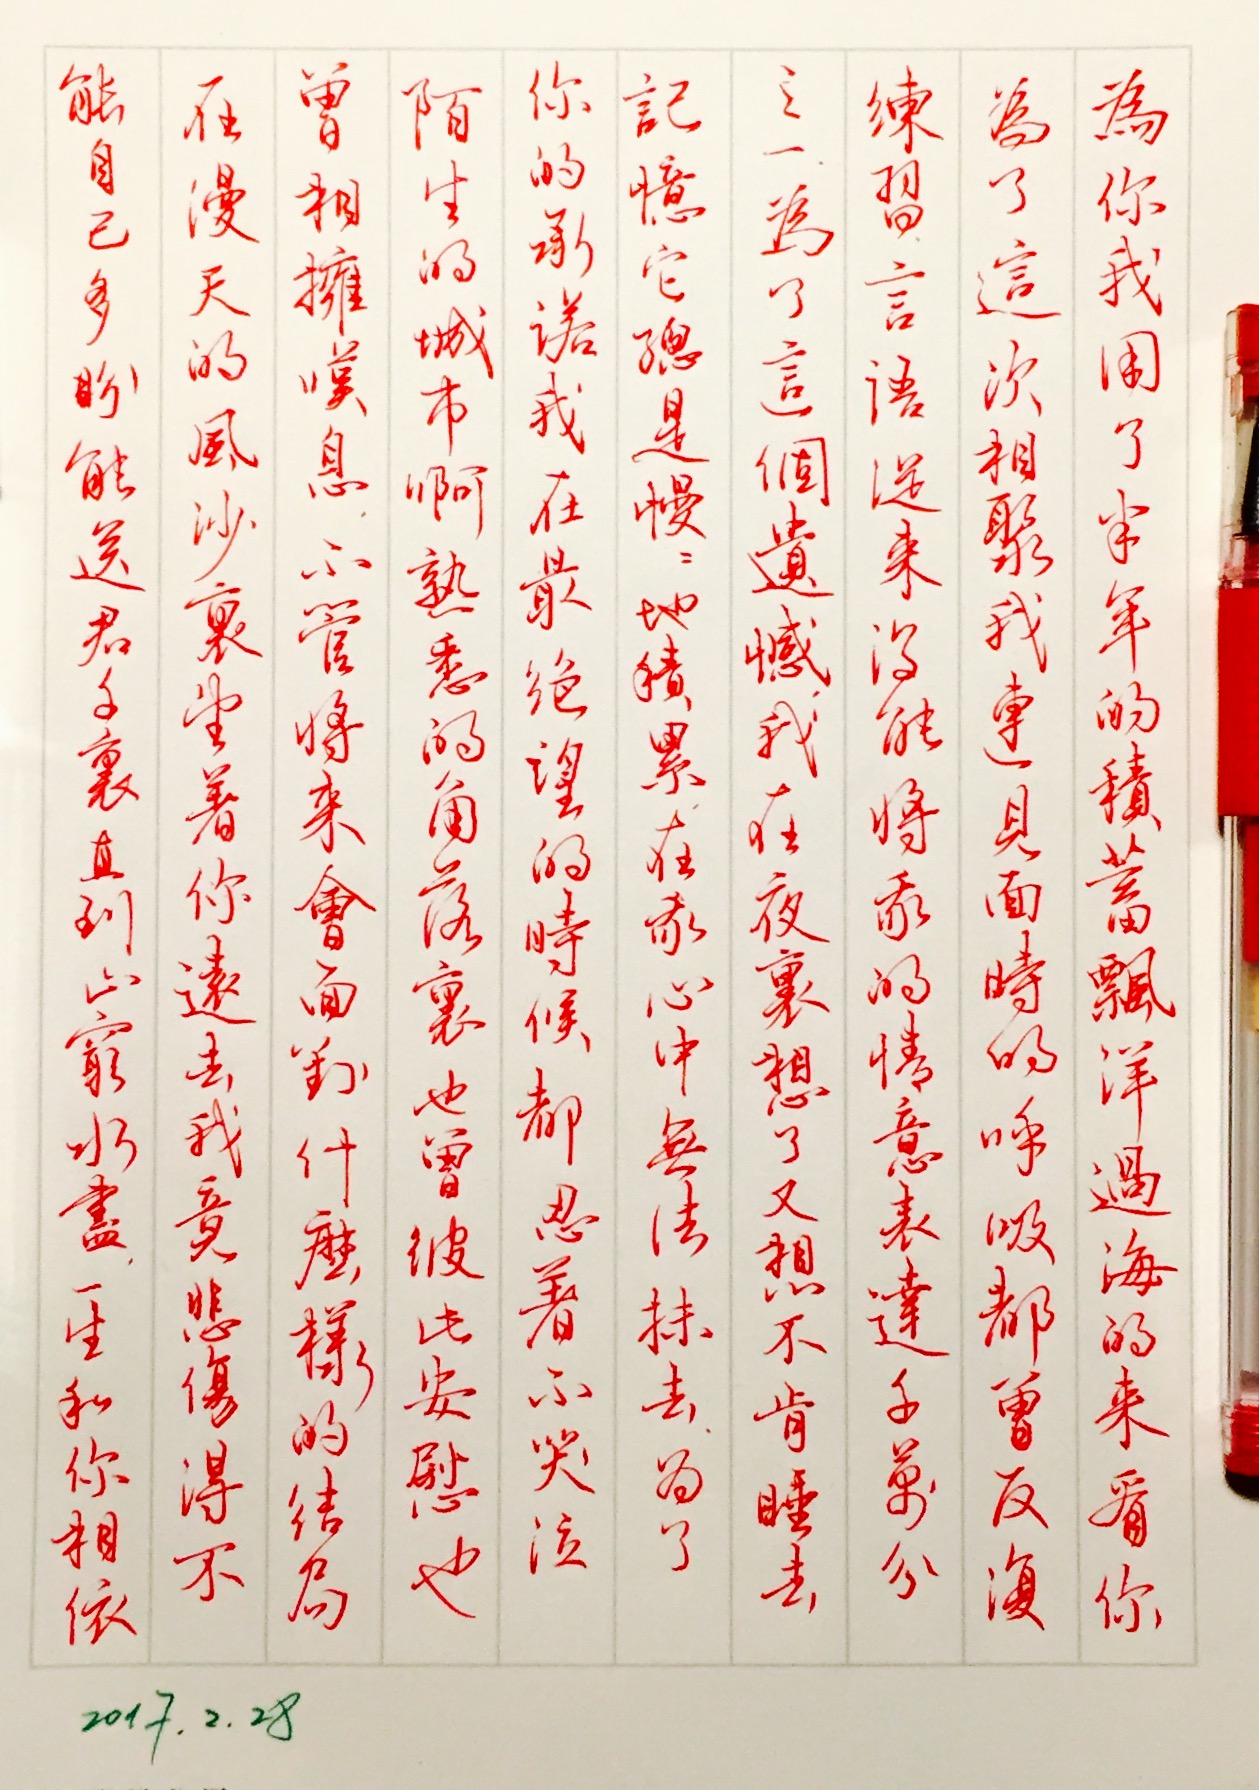 為你我用了半年的積蓄飄洋過海的来看你
為了這次相聚我連見面時的呼吸都曾反復
練習.言語從来没能將我的情意表達千萬分
之一.為了這個遺憾.我在夜裏想了又想不肯睡去
記憶它總是慢〻地積累.在我心中無法抹去.为了
你的承諾我在最绝望的時候都忍著不哭泣
陌生的城市啊熟悉的角落裏也曾彼此安慰也
曾相擁嘆息.不管將来會面對什麼樣的结局
在漫天的風沙裏望著你遠去我竟悲傷得不
能自已多盼能送君千裏直到山窮水盡.一生和你相依
2017.2.28